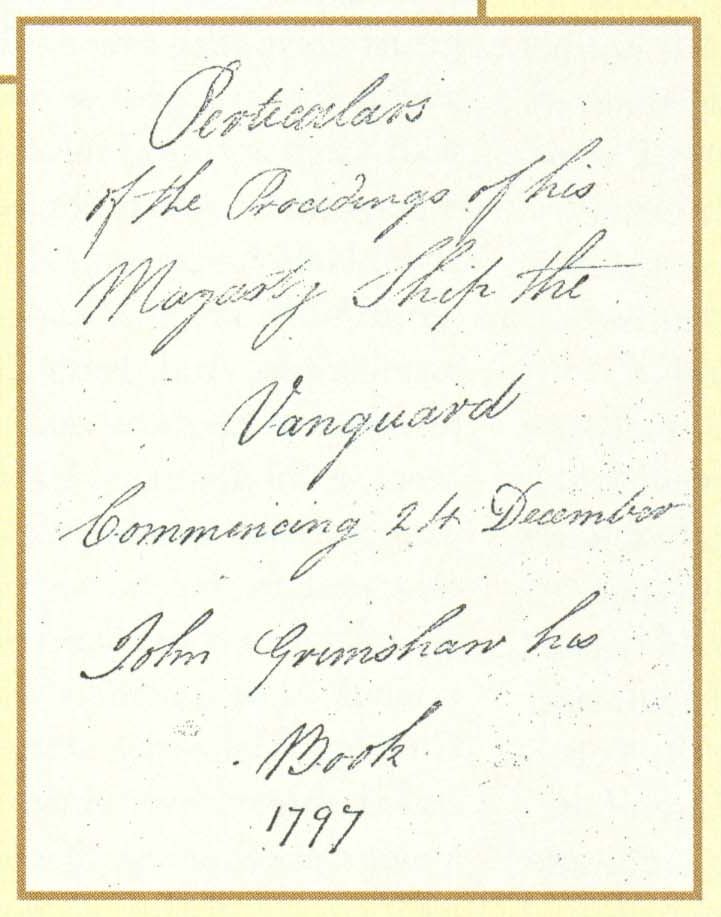 Perticulars
of the Procidings of his
Magasty Ship the
Vanguard
Commencing 24 December
John Grimshaw his
Book
1797